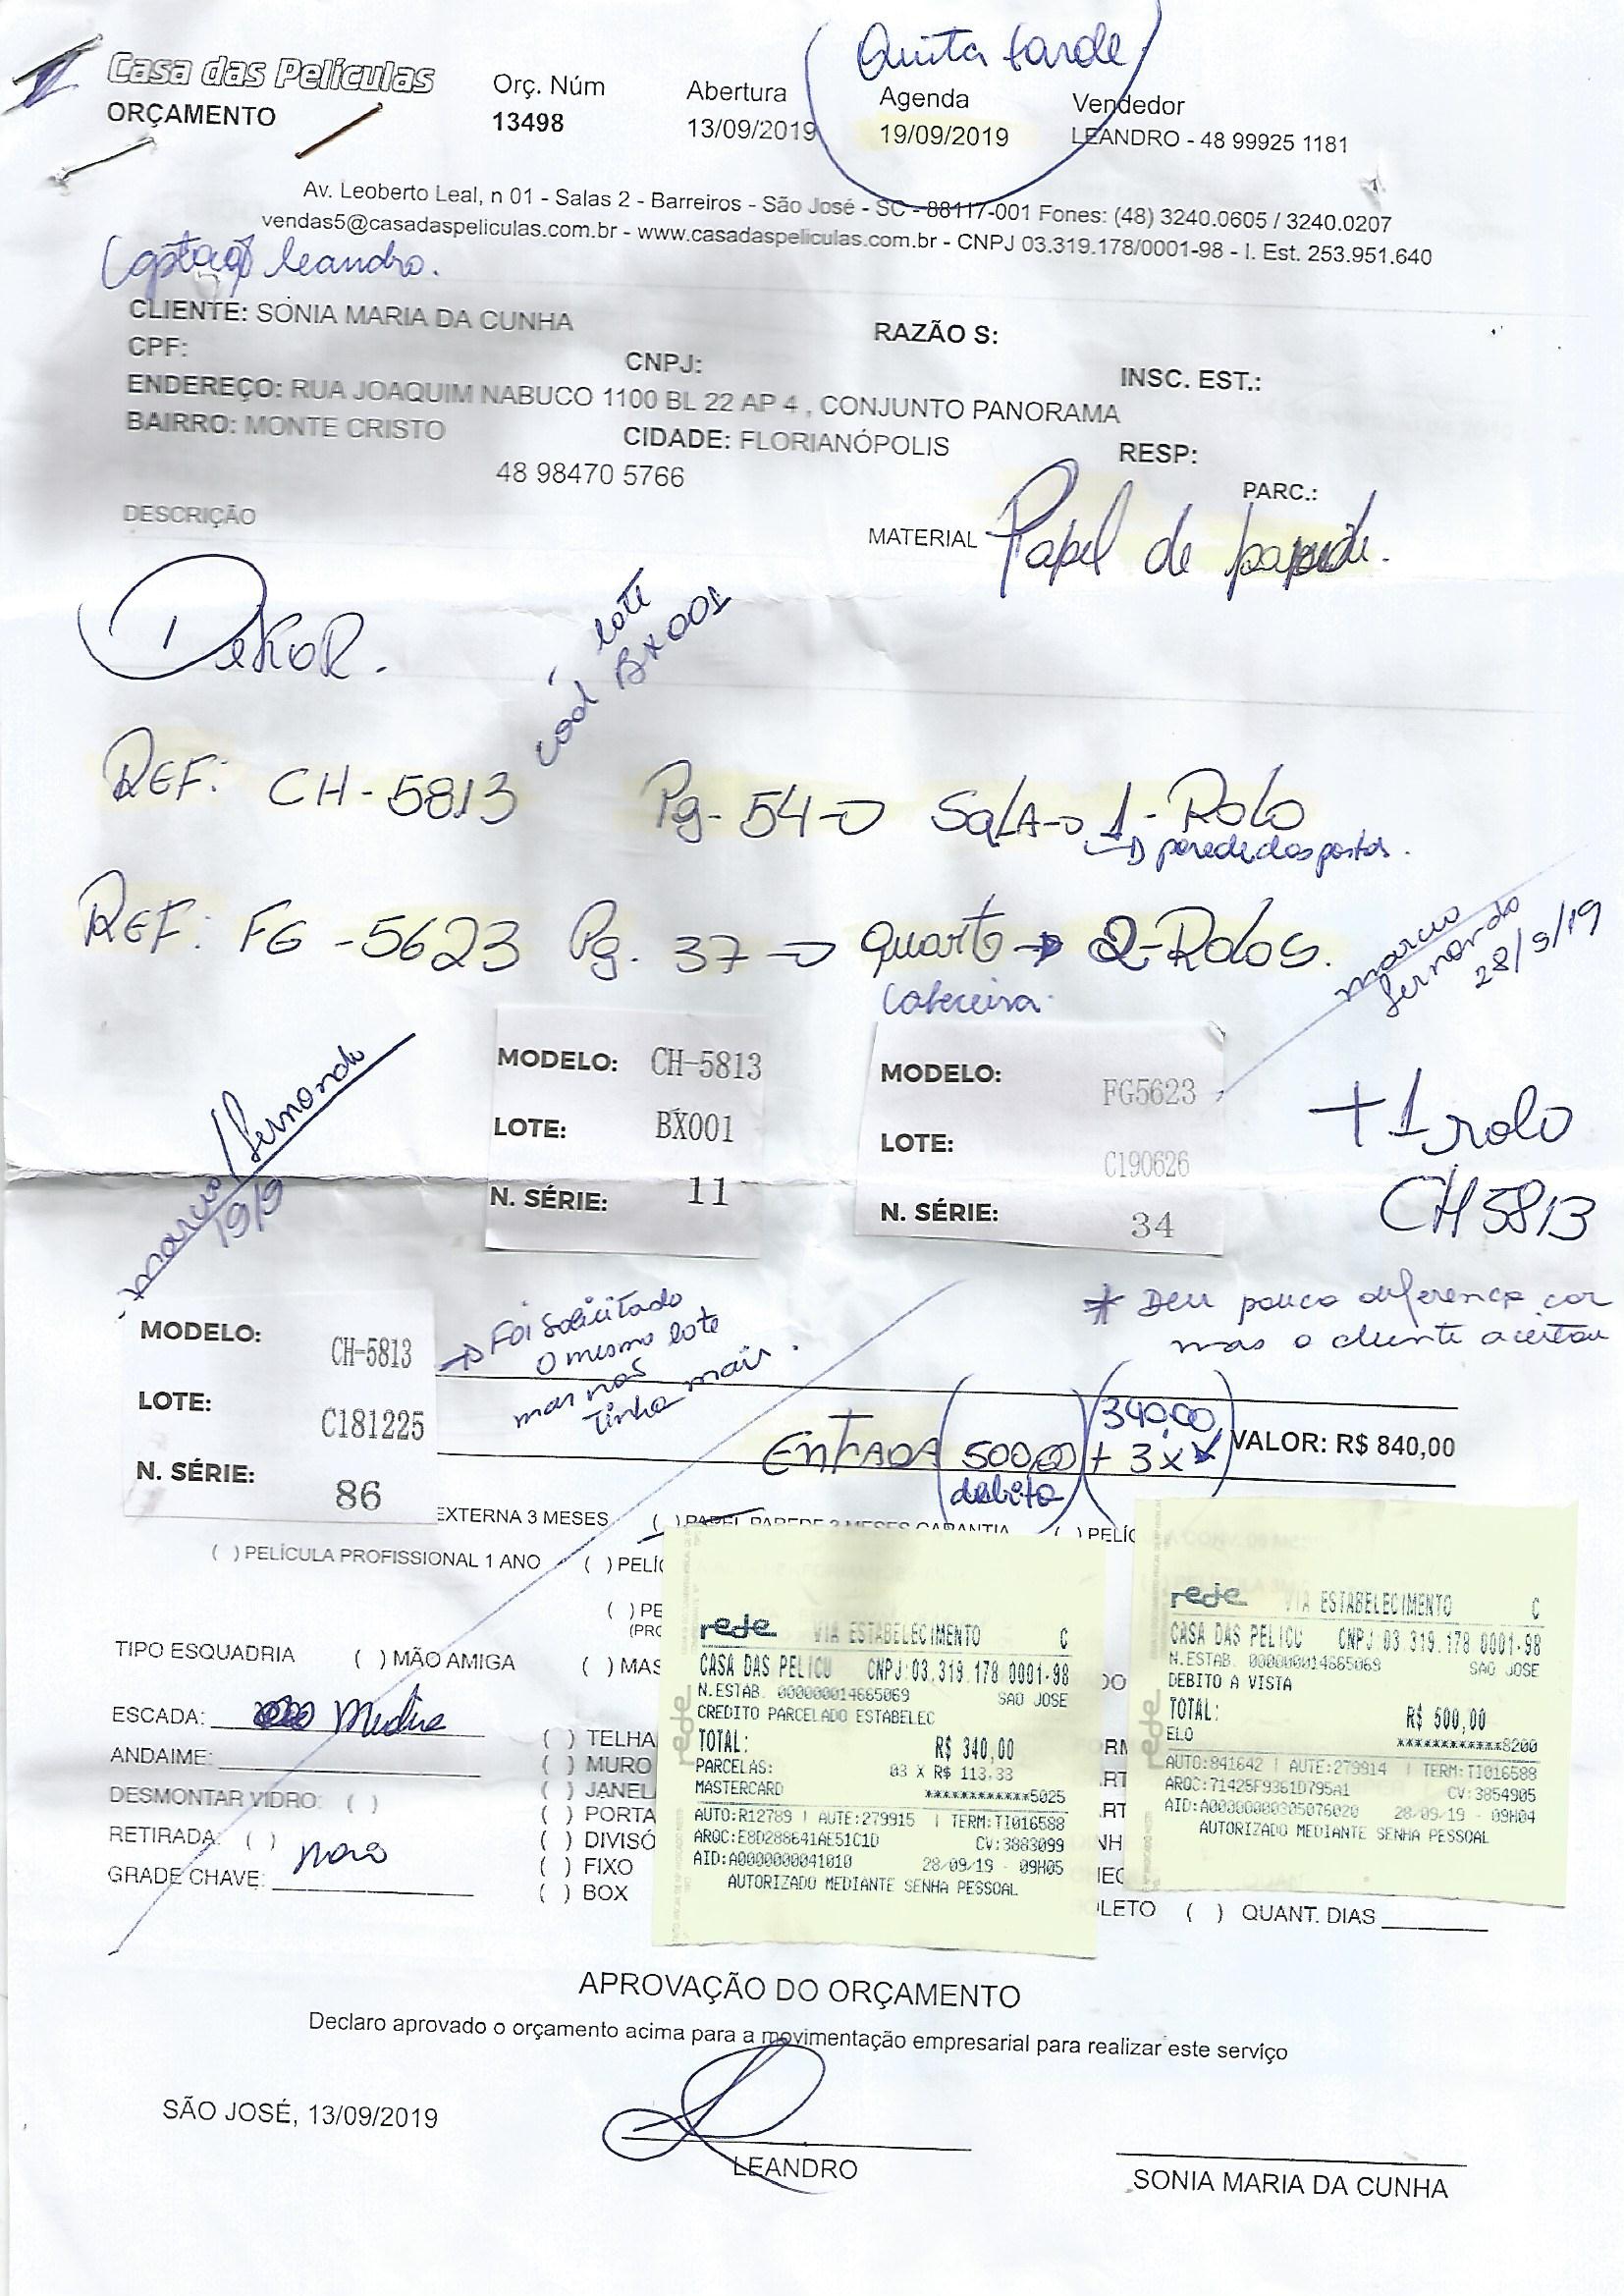 Quita tarde
Casa das Películas
ORÇAMENTO
Orç. Núm
13498
Abertura
13/09/2019
Agenda
19/09/2019
Vendedor
LEANDRO - 48 99925 1181
Av. Leoberto Leal, n 01 - Salas 2 - Barreiros - São José - SC - 88117-001 Fones: (48) 3240.0605 / 3240.0207
vendas5@casadaspeliculas.com.br - www.casadaspeliculas.com.br - CNPJ 03.319.178/0001-98 - I. Est. 253.951.640
leandro.
CLIENTE: SONIA MARIA DA CUNHA
RAZÃO S:
CPF:
CNPJ:
INSC. EST.:
ENDEREÇO: RUA JOAQUIM NABUCO 1100 BL 22 AP 4 , CONJUNTO PANORAMA
BAIRRO: MONTE CRISTO
CIDADE: FLORIANÓPOLIS
RESP:
48 98470 5766
PARC.:
DESCRIÇÃO
MATERIAL Papel de parede.
DEKOR.
lote
cod BX001
REF: CH-5813 Pg-54 → SALA → 1-Rolo
→ parede das portas.
REF: FG-5623 Pg. 37 → quarto → 2-Rolos.
Cabeceira.
marcio
fernando
28/9/19
marcio/fernando
19/9
MODELO: CH-5813
LOTE: BX001
N. SÉRIE: 11
MODELO: FG5623
LOTE: C190626
N. SÉRIE: 34
+1 rolo
CH5813
* Deu pouca diferença cor
mas o cliente aceitou
MODELO: CH-5813
LOTE: C181225
N. SÉRIE: 86
→ Foi solicitado
o mesmo lote
mas não
tinha mais.
ENTRADA (500,00 debito) + (340,00 3x)
VALOR: R$ 840,00
EXTERNA 3 MESES
( ) PAPEL PAREDE 3 MESES GARANTIA
( ) PELÍC
( ) PELÍCULA PROFISSIONAL 1 ANO
( ) PELÍC
( ) PE
(PRO
TIPO ESQUADRIA
( ) MÃO AMIGA
( ) MAS
ESCADA: Media
ANDAIME:
DESMONTAR VIDRO: ( )
RETIRADA: ( )
GRADE CHAVE:
( ) TELHA
( ) MURO
( ) JANEL
( ) PORTA
( ) DIVISÓ
( ) FIXO
( ) BOX
rede VIA ESTABELECIMENTO C
CASA DAS PELICU CNPJ:03.319.178 0001-98
N.ESTAB. 000000014665069 SAO JOSE
CREDITO PARCELADO ESTABELEC
TOTAL: R$ 340,00
PARCELAS: 03 X R$ 113,33
MASTERCARD ************5025
AUTO:R12789 | AUTE:279915 | TERM:TI016588
ARQC:E8D288641AE51C1D CV:3883099
AID:A0000000041010 28/09/19 - 09H05
AUTORIZADO MEDIANTE SENHA PESSOAL
rede VIA ESTABELECIMENTO C
CASA DAS PELICU CNPJ:03.319.178 0001-98
N.ESTAB. 000000014665069 SAO JOSE
DEBITO A VISTA
TOTAL: R$ 500,00
ELO ************8200
AUTO:841642 | AUTE:279914 | TERM:TI016588
ARQC:71425F9361D795A1 CV:3854905
AID:A0000000305076020 28/09/19 - 09H04
AUTORIZADO MEDIANTE SENHA PESSOAL
LETO ( ) QUANT. DIAS
APROVAÇÃO DO ORÇAMENTO
Declaro aprovado o orçamento acima para a movimentação empresarial para realizar este serviço
SÃO JOSÉ, 13/09/2019
LEANDRO
SONIA MARIA DA CUNHA